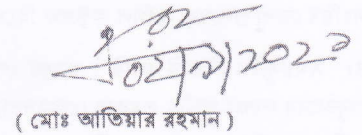 ০২/০৯/২০২১
( মোঃ আতিয়ার রহমান )